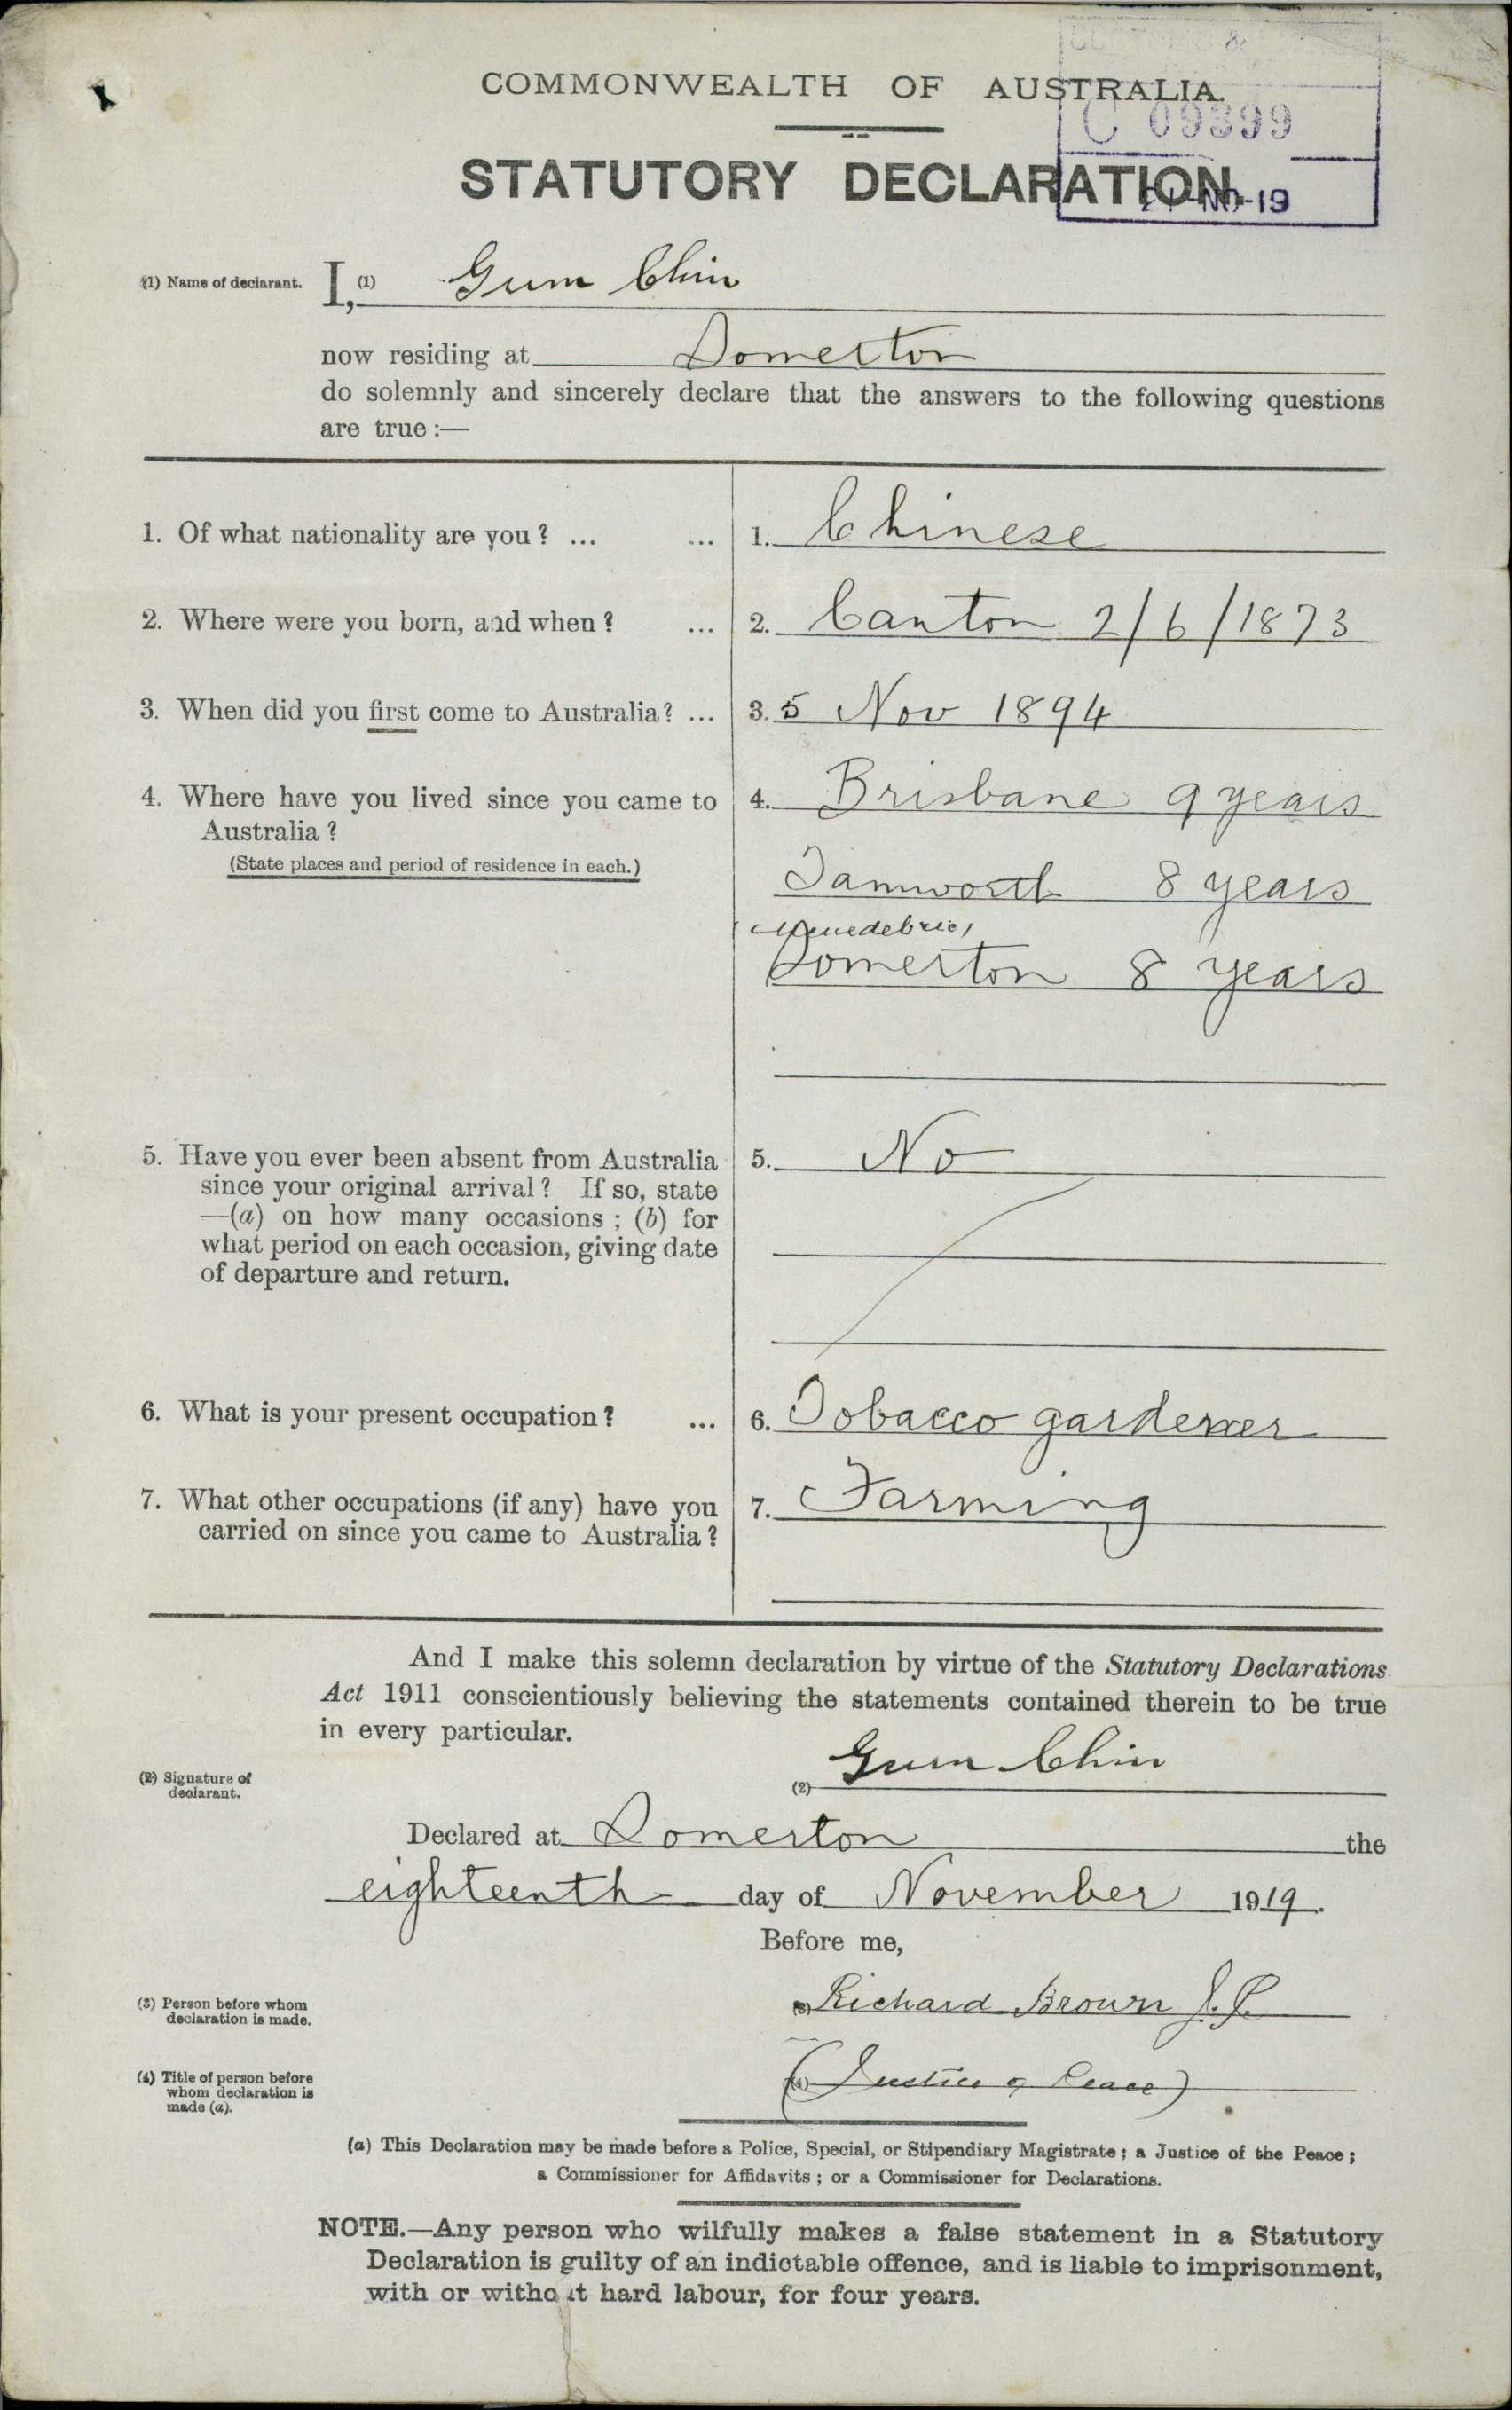 COMMONWEALTH OF AUSTRALIA.
C 09399
STATUTORY DECLARATION.
NO-19
(1) Name of declarant. I, (1) Gum Chin
now residing at Somerton
do solemnly and sincerely declare that the answers to the following questions
are true :—
1. Of what nationality are you ? ... ... 1. Chinese
2. Where were you born, and when ? ... 2. Canton 2/6/1873
3. When did you first come to Australia? ... 3. 5 Nov 1894
4. Where have you lived since you came to 4. Brisbane 9 years
Australia ?
(State places and period of residence in each.)
Tamworth 8 years
Somerton 8 years
5. Have you ever been absent from Australia 5. No
since your original arrival ? If so, state
—(a) on how many occasions ; (b) for
what period on each occasion, giving date
of departure and return.
6. What is your present occupation ? ... 6. Tobacco gardener
7. What other occupations (if any) have you 7. Farming
carried on since you came to Australia ?
And I make this solemn declaration by virtue of the Statutory Declarations
Act 1911 conscientiously believing the statements contained therein to be true
in every particular.
(2) Signature of
declarant.
(2) Gum Chin
Declared at Somerton the
eighteenth day of November 1919.
Before me,
(3) Person before whom
declaration is made.
(3) Richard Brown J.P.
(4) Title of person before
whom declaration is
made (a).
(4) (Justice of Peace)
(a) This Declaration may be made before a Police, Special, or Stipendiary Magistrate ; a Justice of the Peace ;
a Commissioner for Affidavits ; or a Commissioner for Declarations.
NOTE.—Any person who wilfully makes a false statement in a Statutory
Declaration is guilty of an indictable offence, and is liable to imprisonment,
with or without hard labour, for four years.